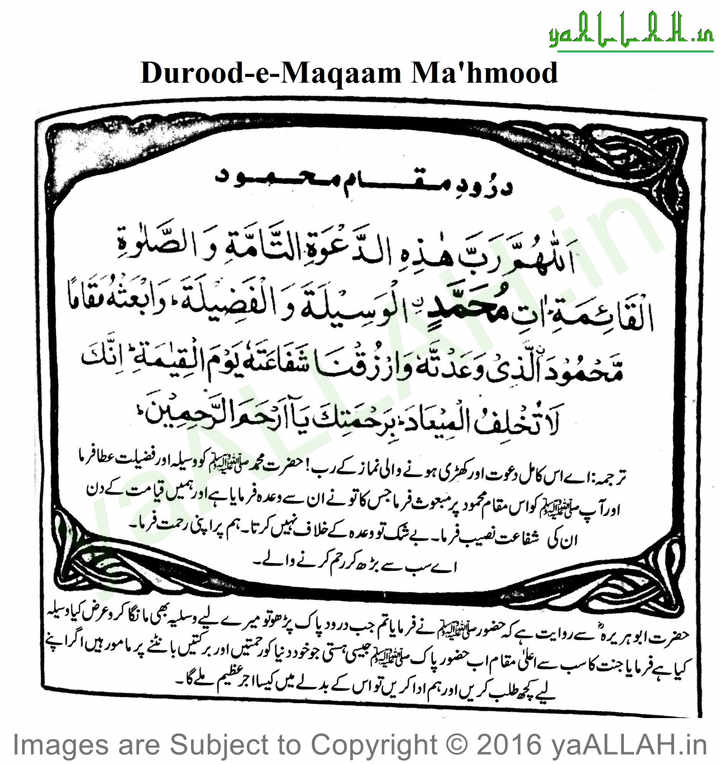 yaALLAH.in
Durood-e-Maqaam Ma'hmood
درُودِ مقام محمود
اَللّٰهُمَّ رَبَّ هٰذِهِ الدَّعْوَةِ التَّامَّةِ وَالصَّلٰوةِ
الْقَائِمَةِ اٰتِ مُحَمَّدٍ نِ الْوَسِيْلَةَ وَالْفَضِيْلَةَ وَابْعَثْهُ مَقَامًا
مَّحْمُوْدَ نِ الَّذِىْ وَعَدْتَّهٗ وَارْزُقْنَا شَفَاعَتَهٗ يَوْمَ الْقِيٰمَةِ ۚ اِنَّكَ
لَا تُخْلِفُ الْمِيْعَادَ ۚ بِرَحْمَتِكَ يَآ اَرْحَمَ الرَّحِمِيْنَ ۚ
ترجمہ: اے اس کامل دعوت اور کھڑی ہونے والی نماز کے رب! حضرت محمد صلی اللہ علیہ وسلم کو وسیلہ اور فضیلت عطا فرما
اور آپ صلی اللہ علیہ وسلم کو اس مقام محمود پر مبعوث فرما جس کا تو نے ان سے وعدہ فرمایا ہے اور ہمیں قیامت کے دن
ان کی شفاعت نصیب فرما۔ بے شک تو وعدہ کے خلاف نہیں کرتا۔ ہم پر اپنی رحمت فرما۔
اے سب سے بڑھ کر رحم کرنے والے۔
حضرت ابو ہریرہؓ سے روایت ہے کہ حضور صلی اللہ علیہ وسلم نے فرمایا تم جب درود پاک پڑھو تو میرے لیے وسلیہ بھی مانگا کرو عرض کیا وسیلہ
کیا ہے فرمایا جنت کا سب سے اعلیٰ مقام اب حضور پاک صلی اللہ علیہ وسلم جیسی ہستی جو خود دنیا کو رحمتیں اور برکتیں بانٹنے پر مامور ہیں اگر اپنے
لیے کچھ طلب کریں اور ہم ادا کریں تو اس کے بدلے میں کیسا اجر عظیم ملے گا۔
yaALLAH.in
Images are Subject to Copyright © 2016 yaALLAH.in